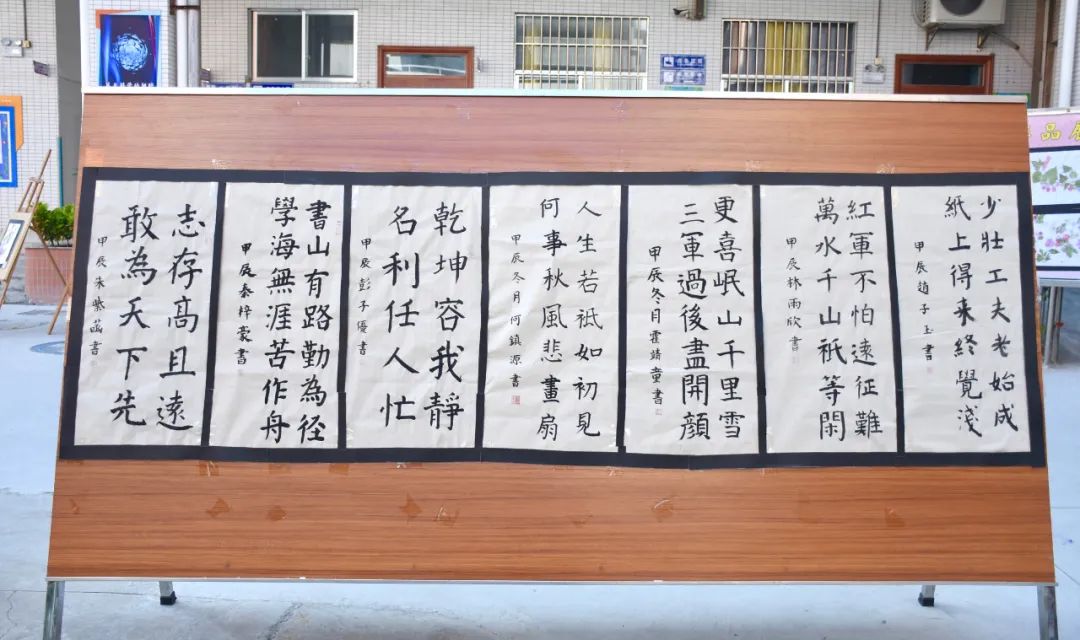 少壯工夫老始成
紙上得来終覺淺
甲辰趙子玉書
紅軍不怕遠征難
萬水千山祇等閑
甲辰林雨欣書
更喜岷山千里雪
三軍過後盡開顏
甲辰冬月霍靖童書
人生若祇如初見
何事秋風悲畫扇
甲辰冬月何鎮源書
乾坤容我靜
名利任人忙
甲辰彭子優書
書山有路勤為径
學海無涯苦作舟
甲辰秦梓蒙書
志存高且遠
敢為天下先
甲辰朱紫菡書
品